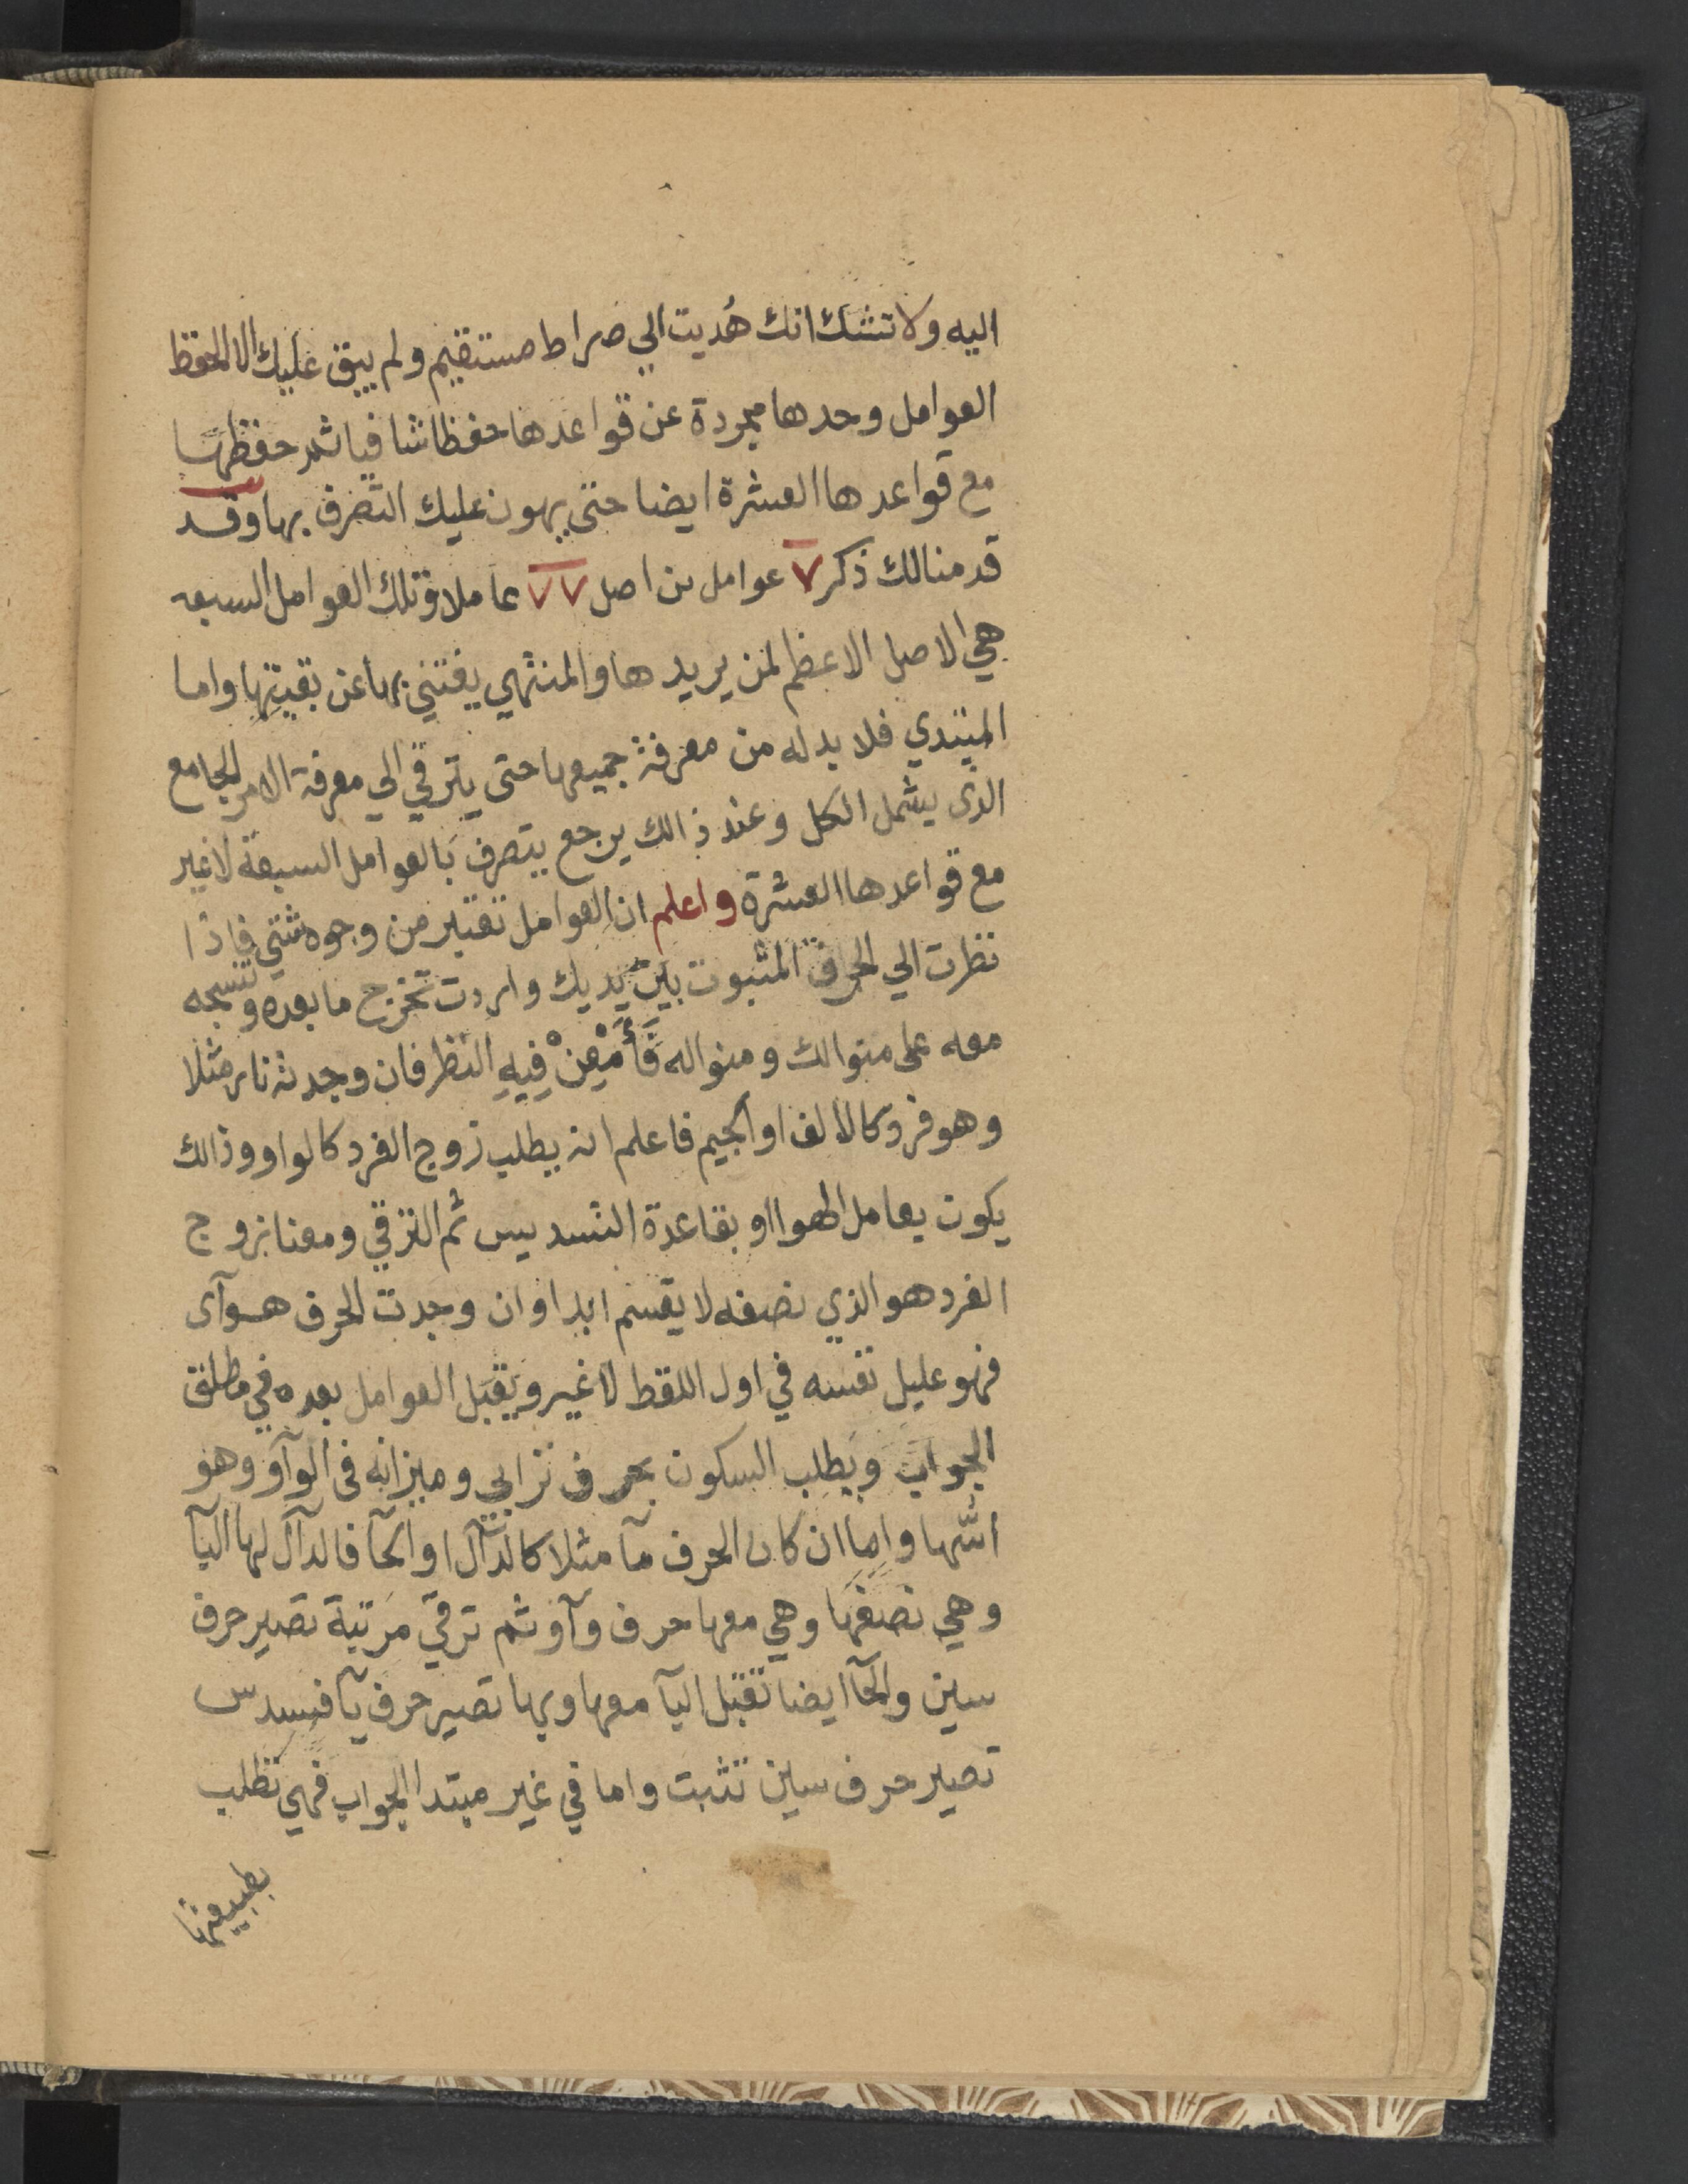 اليه ولا تشك انك هُديت الي صراط مستقيم ولم يبق عليك الا الحفظ
العوامل وحدها مجردة عن قواعدها حفظا شافيا ثم حفظها
مع قواعدها العشرة ايضا حتي يهون عليك التصرف بها وقد
قدمنا لك ذكر ٧ عوامل من اصل ٧٧ عاملا وتلك العوامل السبعه
هي الاصل الاعظم لمن يريدها والمنتهي يغتني بها عن بقيتها واما
المبتدي فلا بد له من معرفة جميعها حتى يترقي الي معرفة الامر الجامع
الذى يشمل الكل وعند ذالك يرجع يتصرف بالعوامل السبعة لا غير
مع قواعدها العشرة واعلم ان العوامل تعتبر من وجوه شتي فاذا
نظرت الي الحرف المثبوت بين يديك واردت تخرج ما بعده وتنسجه
معه على منوالك ومنواله فَأَمْعِنْ فِيهِ النظر فان وجدته نار مثلا
وهو فرد كالالف او الجيم فاعلم انه يطلب زوج الفرد كالواو وذالك
يكون بعامل الهوا او بقاعدة التسديس ثم الترقي ومعنا بزوج
الفرد هو الذي نصفه لا يقسم ابدا وان وجدت الحرف هوآى
فهو عليل نفسه في اول اللقط لا غير ويقبل العوامل بعده في مطلق
الجواب ويطلب السكون بحرف ترابي وميزانه فى الوآو وهو
اشها واما ان كان الحرف مآ مثلا كالدآل او الحآ فالدآل لها اليآ
وهي نصفها وهي معها حرف وآو ثم ترقي مرتبة تصير حرف
سين والحآ ايضا تقبل اليآ معها وبها تصير حرف يآ فسدس
تصير حرف سين تثبت واما في غير مبتدا الجواب فهي تطلب
بطبيعتها